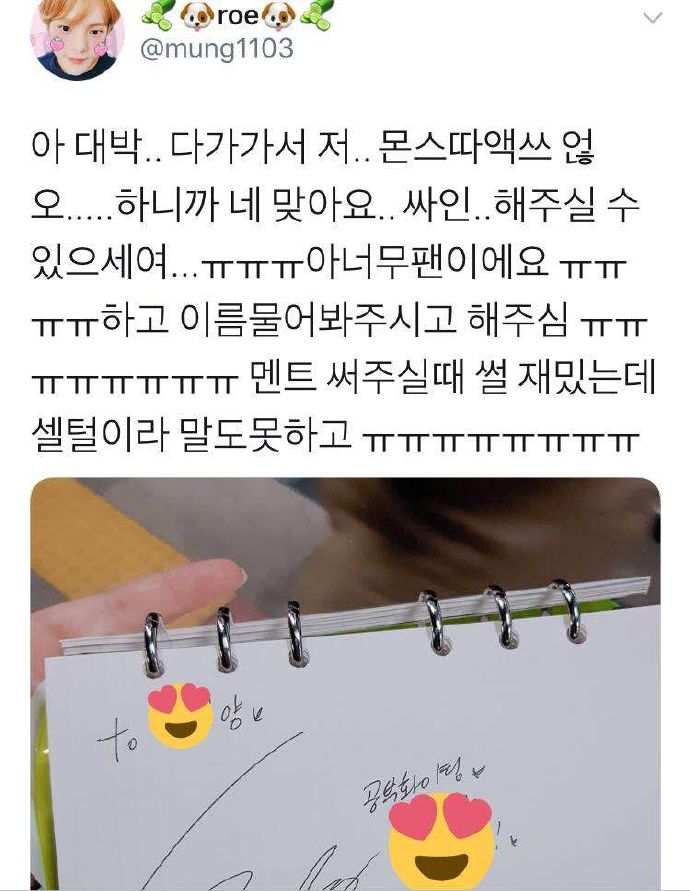 🥒🐶roe🐶🥒
@mung1103
아 대박.. 다가가서 저.. 몬스따액쓰 얺
오.....하니까 네 맞아요.. 싸인..해주실 수
있으세여...ㅠㅠㅠ아너무팬이에요 ㅠㅠ
ㅠㅠ하고 이름물어봐주시고 해주심 ㅠㅠ
ㅠㅠㅠㅠㅠㅠ 멘트 써주실때 썰 재밌는데
셀털이라 말도못하고 ㅠㅠㅠㅠㅠㅠㅠㅠ
to 😍 양
공부화이팅
😍 !